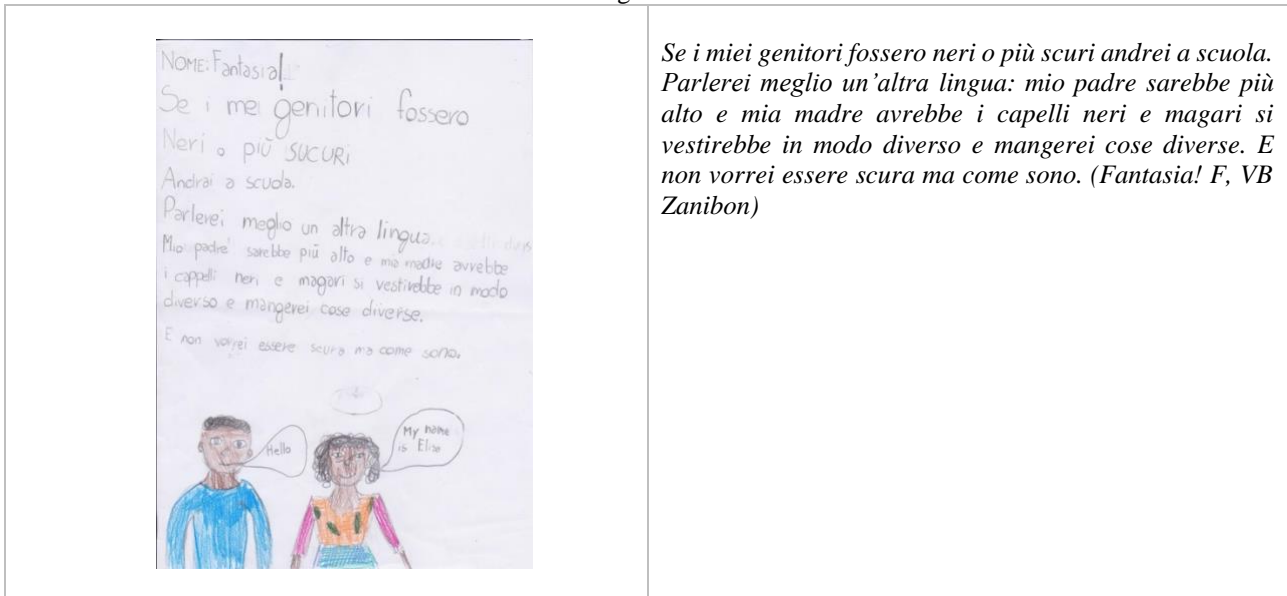 NOME: Fantasia!
Se i mei genitori fossero
Neri o più sucuri
Andrai a scuola.
Parlerei meglio un altra lingua.
Mio padre sarebbe più alto e ma madre avrebbe
i cappelli neri e magari si vestirebbe in modo
diverso e mangerei cose diverse.
E non vorrei essere scura ma come sono.
Hello
My name
is Elisa
Se i miei genitori fossero neri o più scuri andrei a scuola.
Parlerei meglio un'altra lingua: mio padre sarebbe più
alto e mia madre avrebbe i capelli neri e magari si
vestirebbe in modo diverso e mangerei cose diverse. E
non vorrei essere scura ma come sono. (Fantasia! F, VB
Zanibon)